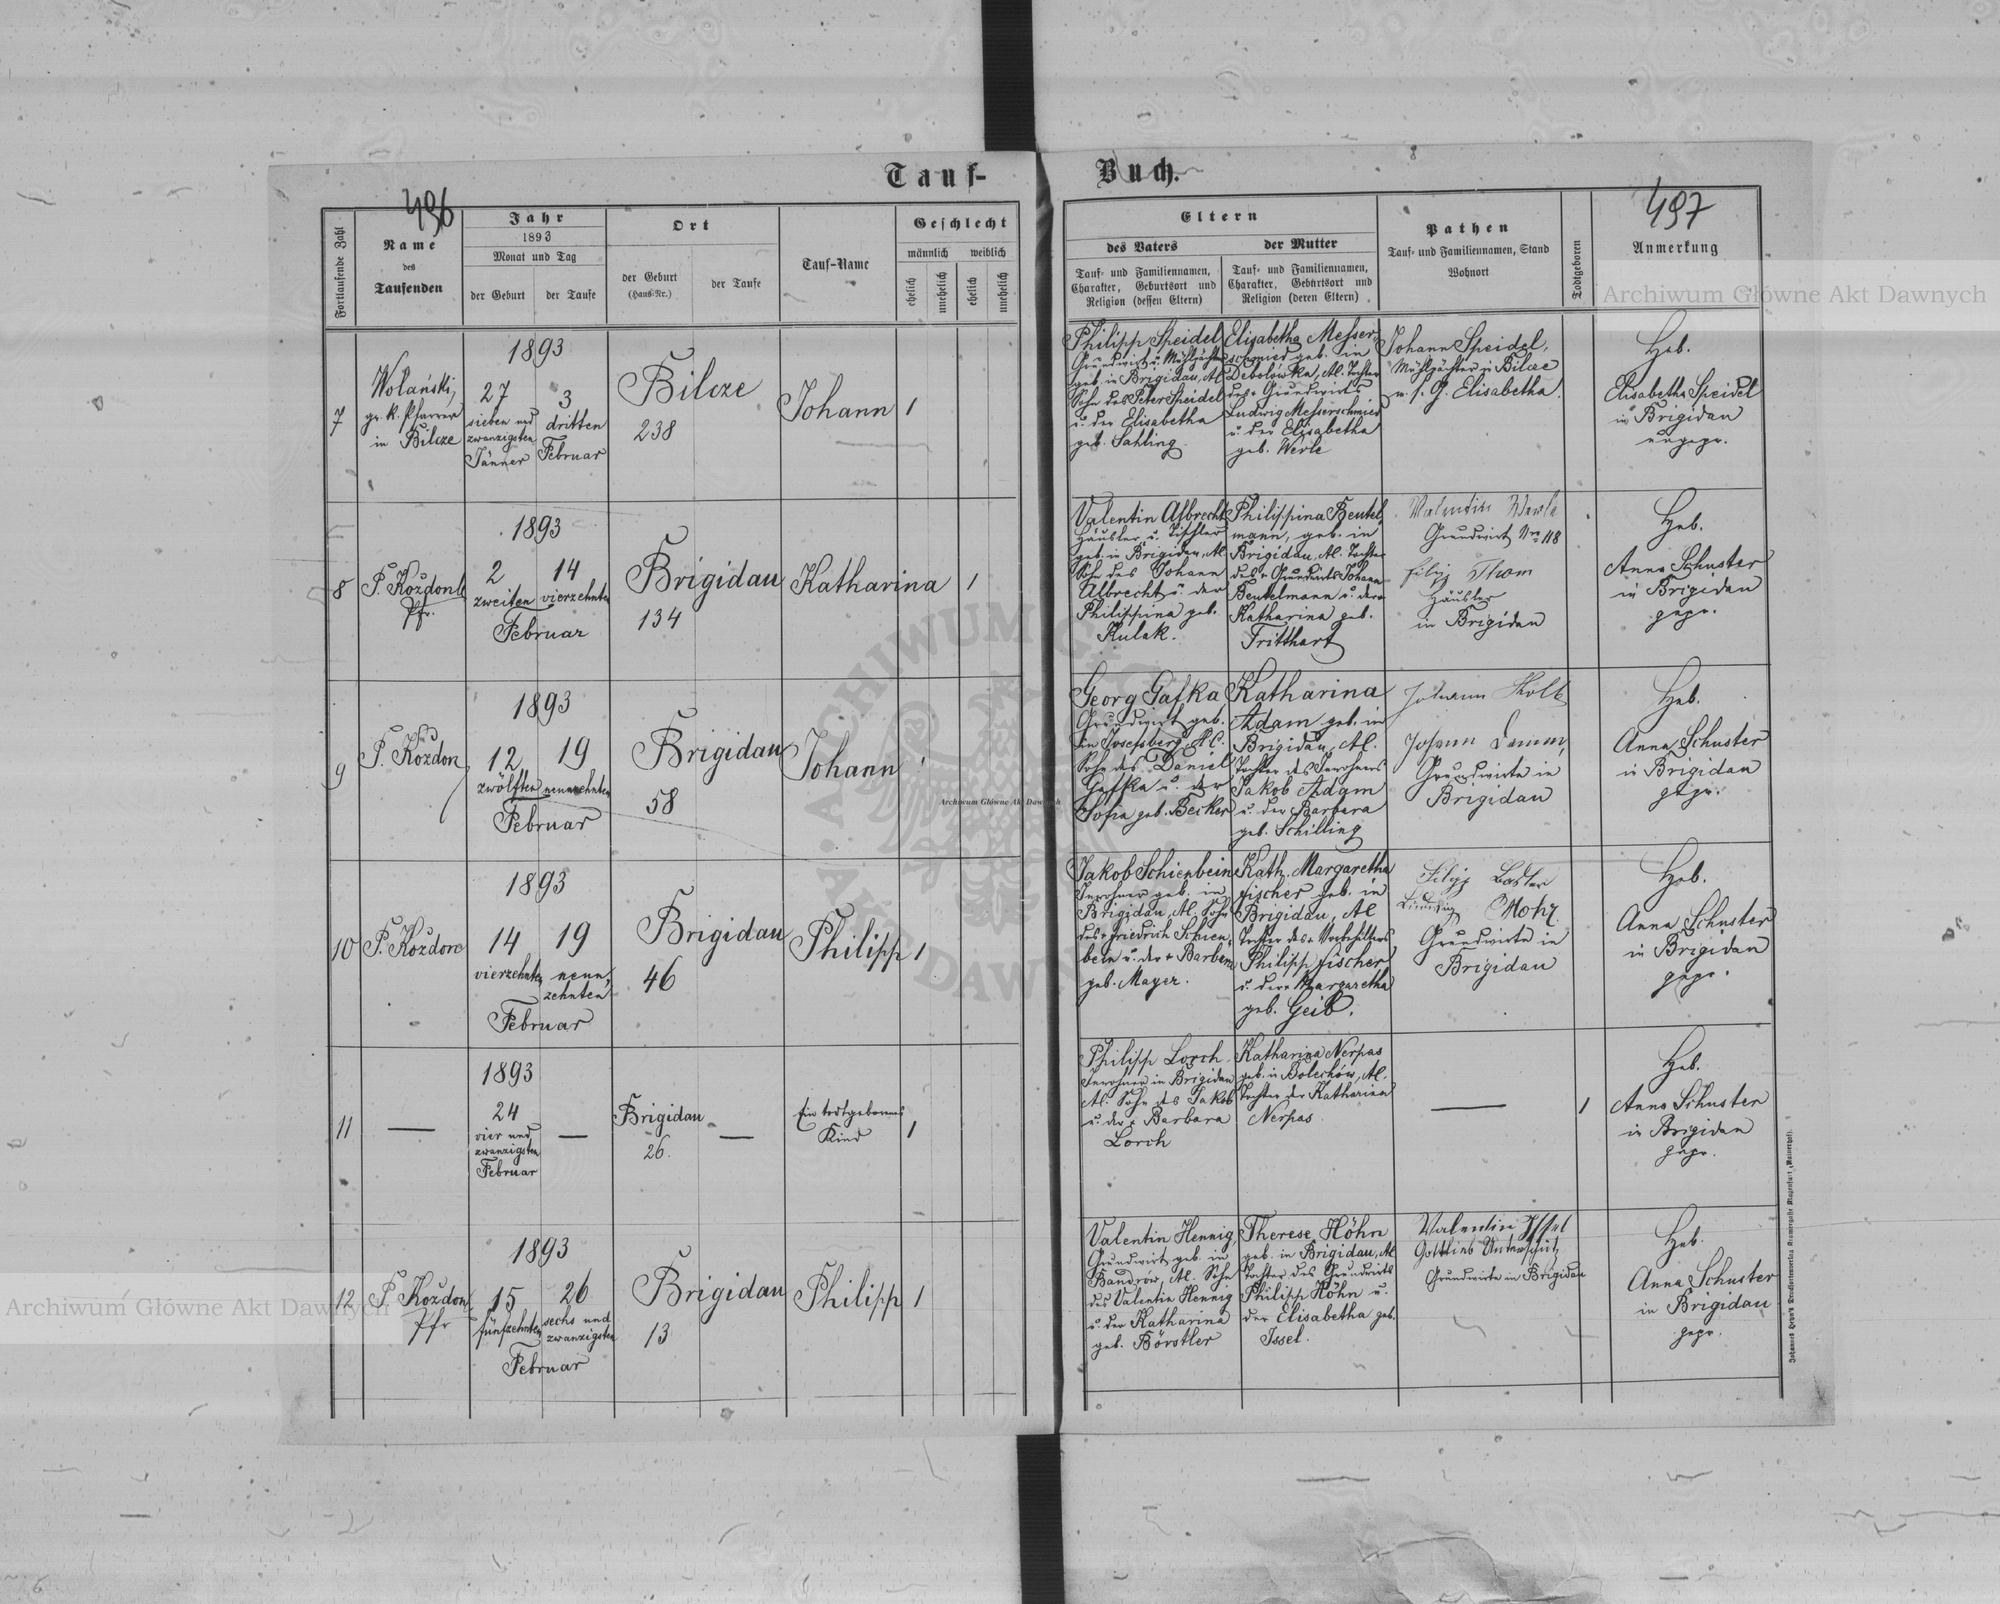 Tauf-Buch.
496
497
Fortlaufende Zahl
Name
des
Taufenden
Jahr
1893
Monat und Tag
der Geburt
der Taufe
Ort
der Geburt
(Haus-Nr.)
der Taufe
Tauf-Name
Geschlecht
männlich
weiblich
ehelich
unehelich
ehelich
unehelich
Eltern
des Vaters
Tauf- und Familiennamen,
Charakter, Geburtsort und
Religion (dessen Eltern)
der Mutter
Tauf- und Familiennamen,
Charakter, Geburtsort und
Religion (deren Eltern)
Pathen
Tauf- und Familiennamen, Stand
Wohnort
Todtgeboren
Anmerkung
7
Wolański,
gr. k. Pfarrer
in Bilcze
1893
27
sieben und
zwanzigsten
Jänner
3
dritten
Februar
Bilcze
238
Johann
1
Philipp Speidel
Grundwirt u. Mühlpächter
geb. in Brigidau, Al.
Sohn des Peter Speidel
u. der Elisabetha
geb. Sahling
Elisabetha Messer-
schmied geb. in
Debolówka, Al. Tochter
des Grundwirts
Ludwig Messerschmied
u. der Elisabetha
geb. Werle
Johann Speidel,
Mühlpächter in Bilcze
u. s. G. Elisabetha
Heb.
Elisabetha Speidel
in Brigidau
ungepr.
8
P. Kozdon
Pfr.
1893
2
zweiten
14
vierzehnten
Februar
Brigidau
134
Katharina
1
Valentin Albrecht
Häusler u. Tischler
geb. in Brigidau, Al.
Sohn des Johann
Albrecht u. der
Philippina geb.
Kulak.
Philippina Beutel-
mann, geb. in
Brigidau, Al. Tochter
des + Grundwirts Johann
Beutelmann u. der
Katharina geb.
Tritthart
Valentin Werle
Grundwirt Nro 118
Filip Thom
Häusler
in Brigidau
Heb.
Anna Schuster
in Brigidau
gepr.
9
P. Kozdon
1893
12
zwölften
19
neunzehnten
Februar
Brigidau
58
Johann
1
Georg Gafka
Grundwirt geb.
in Josefsberg, H.C.
Sohn des Daniel
Gafka u. der
Sofia geb. Becker
Katharina
Adam geb. in
Brigidau, Al.
Tochter des Inwohners
Jakob Adam
u. der Barbara
geb. Schilling
Johann Kolb
Johann Lamm,
Grundwirte in
Brigidau
Heb.
Anna Schuster
in Brigidau
gepr.
10
P. Kozdon
1893
14
vierzehnten
19
neun-
zehnten
Februar
Brigidau
46
Philipp
1
Jakob Schienbein
Inwohner geb. in
Brigidau, Al. Sohn
des + Friedrich Schien-
bein u. der + Barbara
geb. Mayer.
Kath. Margaretha
Fischer geb. in
Brigidau, Al
Tochter des +
Philipp Fischer
u. der + Margaretha
geb. Geib.
Filip
Ludwig Mohr
Grundwirte in
Brigidau
Heb.
Anna Schuster
in Brigidau
gepr.
11
—
1893
24
vier und
zwanzigsten
Februar
—
Brigidau
26.
—
Ein todtgebornes
Kind
1
Philipp Lorch
Inwohner in Brigidau
Al. Sohn des Jakob
u. der + Barbara
Lorch
Katharina Nerpas
geb. in Bolechów, Al.
Tochter der Katharina
Nerpas.
—
1
Heb.
Anna Schuster
in Brigidau
gepr.
12
P. Kozdon
Pfr
1893
15
fünfzehnten
26
sechs und
zwanzigsten
Februar
Brigidau
13
Philipp
1
Valentin Hennig
Grundwirt geb. in
Bandrów, Al. Sohn
des Valentin Hennig
u. der Katharina
geb. Börstler
Therese Höhn
geb. in Brigidau, Al.
Tochter des Grundwirts
Philipp Höhn u.
der Elisabetha geb.
Issel.
Valentin Issel
Gottlieb Unterschütz
Grundwirte in Brigidau
Heb.
Anna Schuster
in Brigidau
gepr.
Archiwum Główne Akt Dawnych
Archiwum Główne Akt Dawnych
Archiwum Główne Akt Dawnych